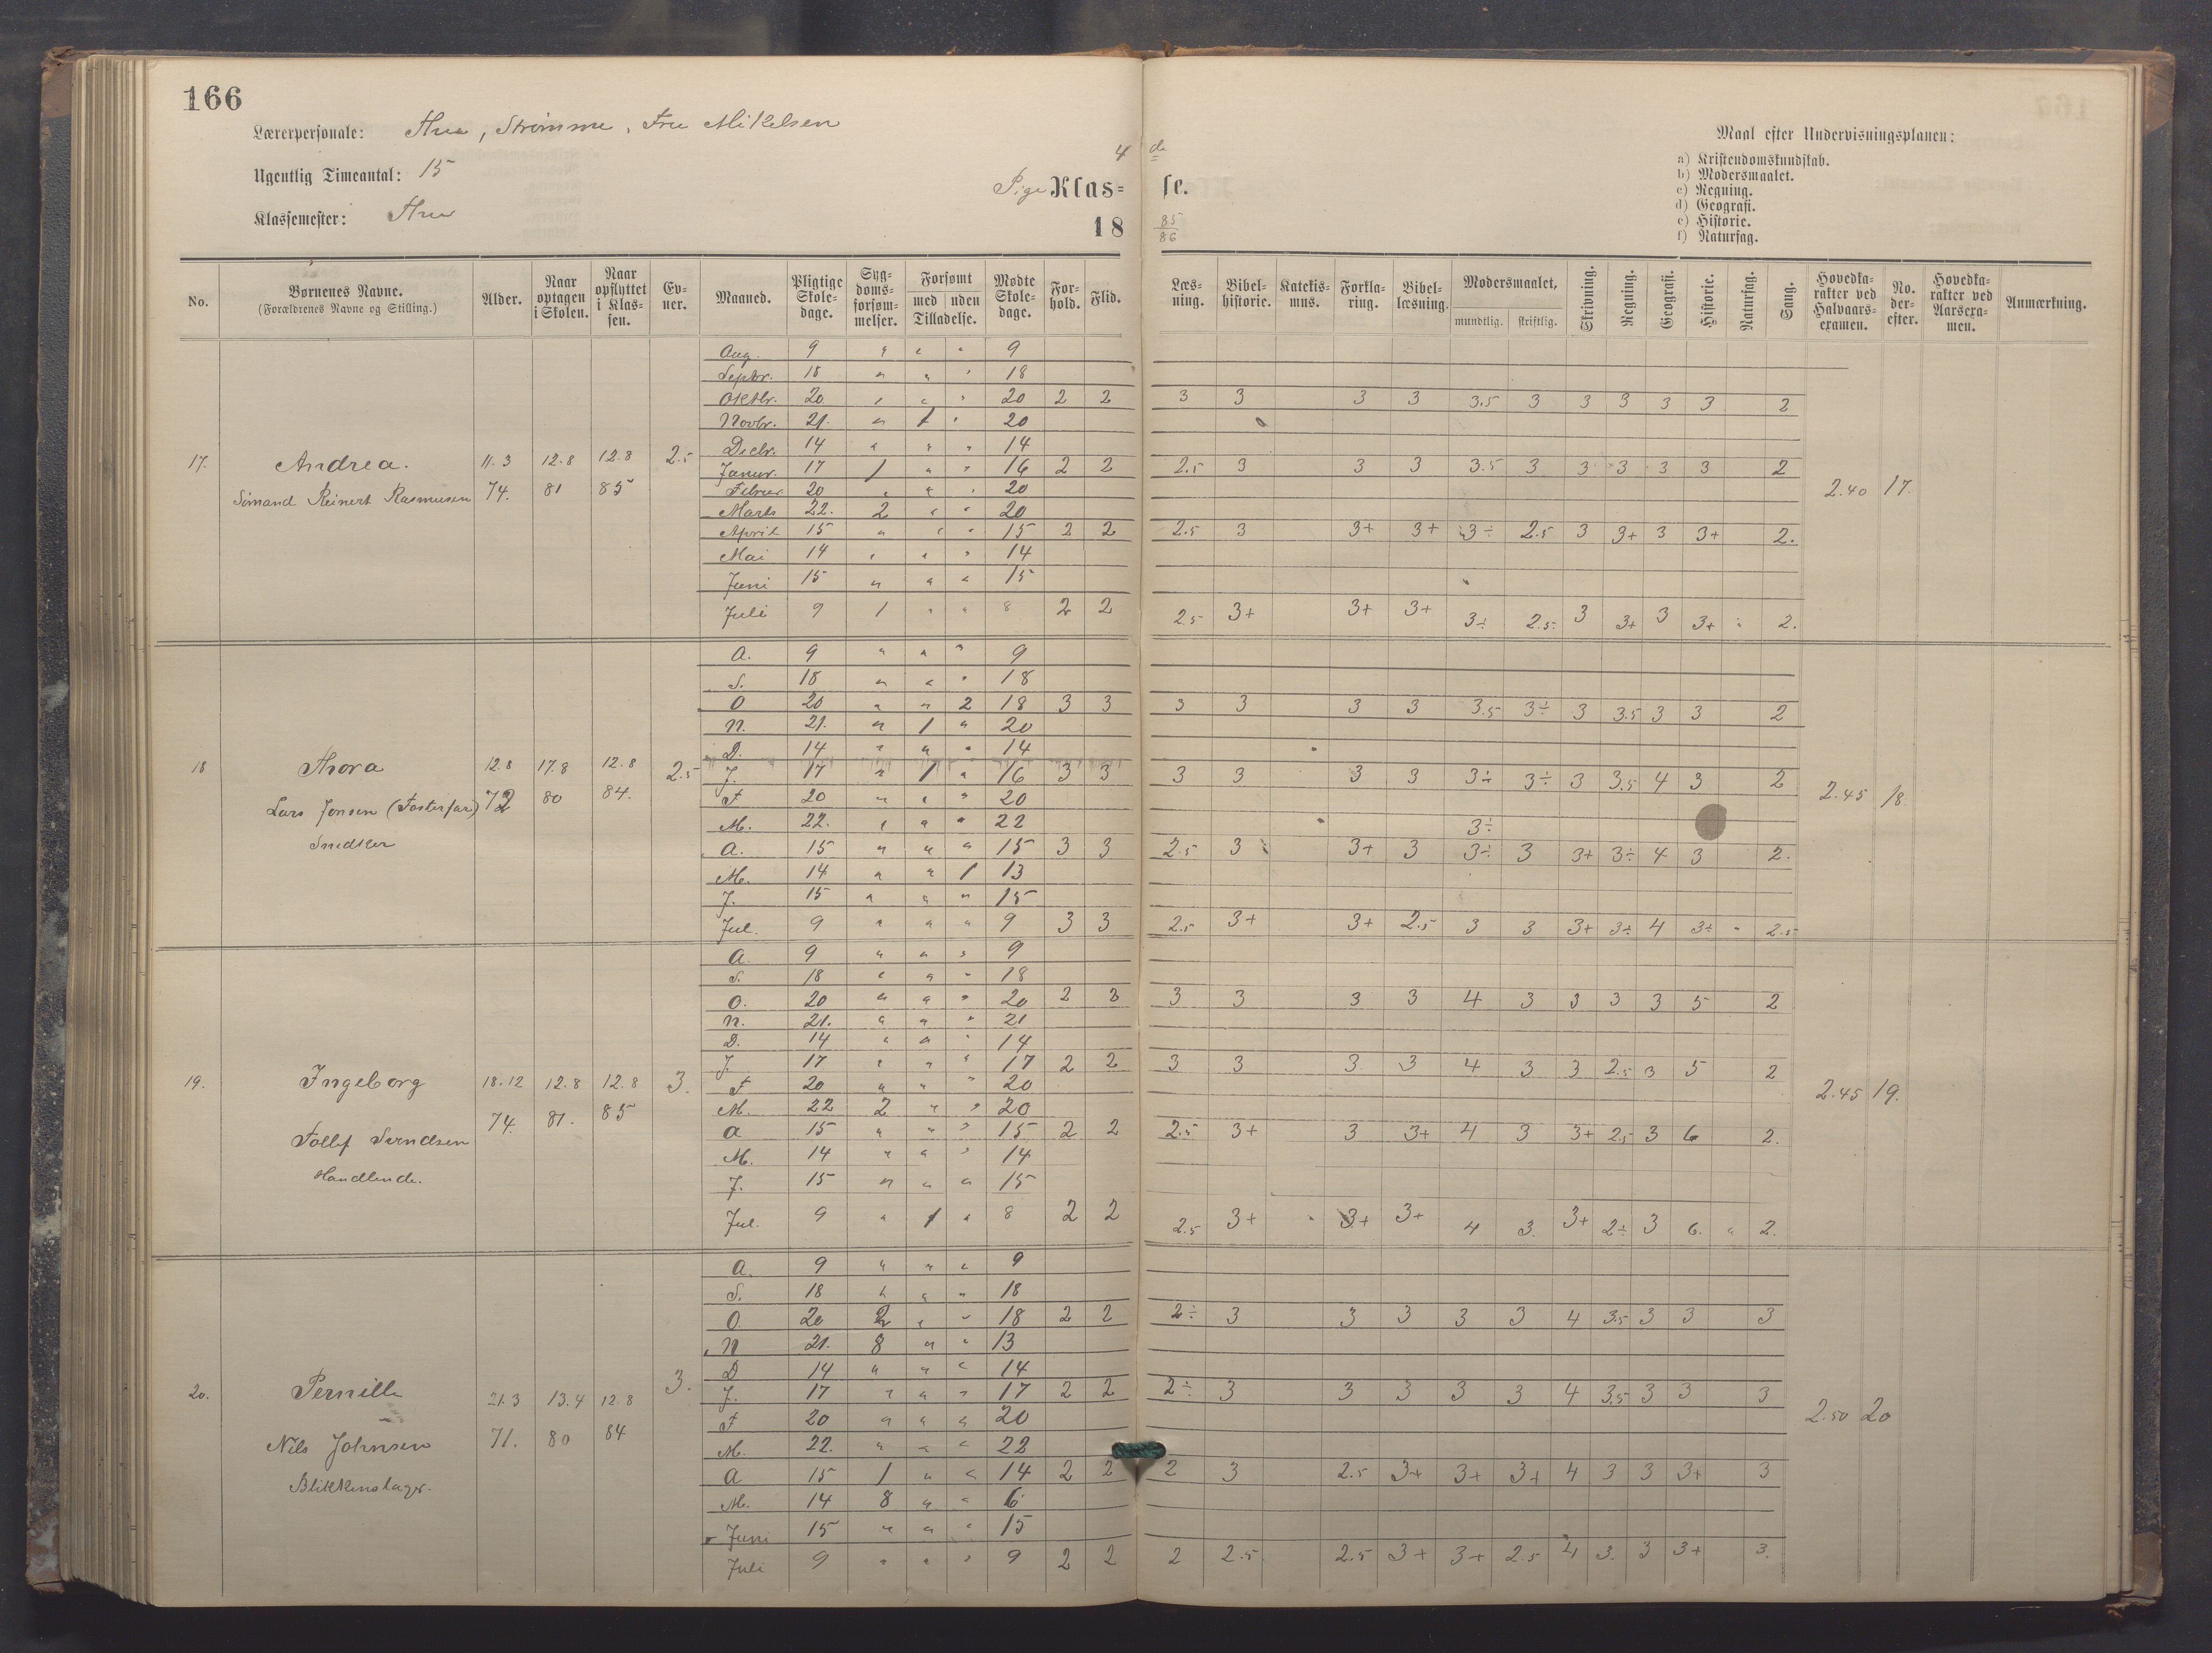 166
Lærerpersonale: Thu, Strømme, Fru Mikelsen
Ugentlig Timeantal: 15
Klassemester: Thu
4 de
Pige Klas= se.
18 85/86
Maal efter Undervisningsplanen:
a) Kristendomskundskab.
b) Modersmaalet.
c) Regning.
d) Geografi.
e) Historie.
f) Naturfag.
No. | Børnenes Navne. (Forældrenes Navne og Stilling.) | Alder. | Naar optagen i Skolen. | Naar opflyttet i Klas=sen. | Ev=ner. | Maaned. | Pligtige Skole=dage. | Syg=doms=forsøm=melser. | Forsømt med uden Tilladelse. | Mødte Skole=dage. | For=hold. | Flid. | Læs=ning. | Bibel=historie. | Katekis=mus. | Forkla=ring. | Bibel=læsning. | Modersmaalet, mundtlig. skriftlig. | Skrivning. | Regning. | Geografi. | Historie. | Naturfag. | Sang. | Hovedka=rakter ved Halvaars=examen. | No. der=efter. | Hovedka=rakter ved Aarsexa=men. | Anmærkning.
17. Andrea. 11.3 74. 12.8 81 12.8 85 2.5
Simand Reinert Rasmusen
Aug. 9 " " " 9
Septbr. 18 " " " 18
Oktbr. 20 " " " 20 2 2 3 3 3 3 3.5 3 3 3 3 3 2
Novbr. 21. " 1 " 20
Decbr. 14 " " " 14
Januar. 17 1 " " 16 2 2 2.5 3 3 3 3.5 3 3 3 3 3 2
Februar 20 " " " 20 2.40 17.
Marts 22. 2 " " 20
April 15 " " " 15 2 2 2.5 3 3+ 3+ 3÷ 2.5 3 3+ 3 3+ 2.
Mai 14 " " " 14
Juni 15 " " " 15
Juli 9 1 " " 8 2 2 2.5 3+ 3+ 3+ 3÷ 2.5 3 3+ 3 3+ " 2.
18 Thora 12.8 72 17.8 80 12.8 84. 2.5
Lars Jonsen (Fosterfar)
Snedker
A. 9 " " " 9
S. 18 " " " 18
O 20 " " 2 18 3 3 3 3 3 3 3.5 3÷ 3 3.5 3 3 2
N. 21. " 1 " 20
D. 14 " " " 14
J. 17 " 1 " 16 3 3 3 3 3 3 3÷ 3÷ 3 3.5 4 3 2
F 20 " " " 20 2.45 18.
M. 22. " " " 22 3÷
A. 15 " " " 15 3 3 2.5 3 3+ 3 3÷ 3 3+ 3÷ 4 3 2.
M. 14 " " 1 13
J. 15 " " " 15
Jul. 9 " " " 9 3 3 2.5 3+ 3+ 2.5 3 3 3+ 3÷ 4 3÷ " 2.5
19. Ingeborg 18.12 74. 12.8 81. 12.8 85 3.
Tollef Svendsen
Handlende.
A. 9 " " " 9
S. 18 " " " 18
O. 20 " " " 20 2 2 3 3 3 3 4 3 3 3 3 5 2
N. 21. " " " 21
D. 14 " " " 14
J. 17 " " " 17 2 2 3 3 3 3 4 3 3 2.5 3 5 2
F 20 " " " 20 2.45 19.
M. 22 2 " " 20
A 15 " " " 15 2 2 2.5 3+ 3 3+ 4 3 3+ 2.5 3 6 2.
M. 14 " " " 14
J. 15 " " " 15
Jul. 9 " 1 " 8 2 2 2.5 3+ " 3+ 3+ 4 3. 3+ 2÷ 3 6. " 2.
20. Pernille 21.3 71. 13.4 80 12.8 84 3.
Nils Johnsen
Blikkenslager.
A. 9 " " " 9
S. 18 " " " 18
O. 20 2 " " 18 2 2 2÷ 3 3 3 3 3 4 3.5 3 3 3
N 21. 8 " " 13
D 14 " " " 14
J. 17 " " " 17 2 2 2÷ 3 3 3 3 3 4 3.5 3 3 3
F 20 " " " 20 2.50 20
M. 22. " " " 22
A 15 1 " " 14 2 2 2 3 2.5 3+ 3+ 3+ 4 3 3 3+ 3
M. 14 8 " " 6
Juni 15 " " " 15
Juli 9 " " " 9 2 2 2 2.5 2.5 3+ 3+ 2.5 4 3. 3 3+ 3.